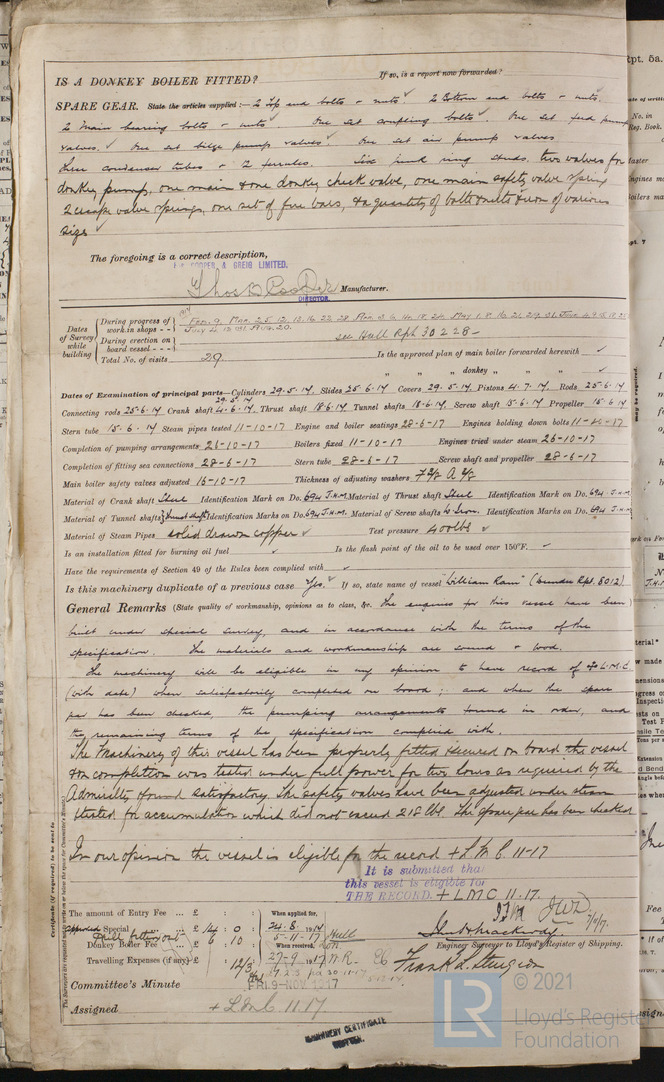 IS A DONKEY BOILER FITTED?
If so, is a report now forwarded?
SPARE GEAR. State the articles supplied:— 2 Top end bolts + nuts 2 Bottom end bolts + nuts,
2 Main bearing bolts + nuts One set coupling bolts. One set feed pump
valves. One set bilge pump valves. One set air pump valves
condenser tubes + 2 ferrules. Six junk ring studs, two valves for
donkey pump, one main + one donkey check valve, one main safety valve spring
2 escape valve springs, one set of fire bars, + a quantity of bolts + nuts + iron of various
sizes
The foregoing is a correct description,
COOPER & GREIG LIMITED.
Manufacturer.
DIRECTOR.
Dates of Survey while building
During progress of work in shops - -
1914 Feb. 9, Mar. 2, 5, 12, 13, 16, 22, 28
During erection on board vessel - - -
see Hull Rpt 30228
Total No. of visits 29.
Is the approved plan of main boiler forwarded herewith
" " " donkey " " "
Dates of Examination of principal parts—Cylinders 29.5.14, Slides 25.6.14 Covers 29.5.14, Pistons 4.7.14, Rods 25.6.14
Connecting rods 25.6.14 Crank shaft 4.6.14, Thrust shaft 18.6.14 Tunnel shafts 18.6.14, Screw shaft 15.6.14 Propeller 15.6.14
Stern tube 15.6.14 Steam pipes tested 11-10-17 Engine and boiler seatings 28-6-17 Engines holding down bolts 11-10-17
Completion of pumping arrangements 26-10-17 Boilers fixed 11-10-17 Engines tried under steam 26-10-17
Completion of fitting sea connections 28-6-17 Stern tube 28-6-17 Screw shaft and propeller 28-6-17
Main boiler safety valves adjusted 16-10-17 Thickness of adjusting washers
Material of Crank shaft Steel Identification Mark on Do. 694 J.H.M. Material of Thrust shaft Steel Identification Mark on Do. 694 J.H.M.
Material of Tunnel shafts Identification Marks on Do. 694 J.H.M. Material of Screw shafts W. Iron. Identification Marks on Do. 694 J.H.M.
Material of Steam Pipes solid drawn copper Test pressure 400 lbs
Is an installation fitted for burning oil fuel Is the flash point of the oil to be used over 150°F.
Have the requirements of Section 49 of the Rules been complied with
Is this machinery duplicate of a previous case Yes. If so, state name of vessel "William Ram" (Dundee Rpt. 8012)
General Remarks (State quality of workmanship, opinions as to class, &c. The engines for this vessel have been
built under special survey, and in accordance with the terms of the
specification. The materials and workmanship are sound + good.
The machinery will be eligible in my opinion to have record of + L.M.C.
(with date) when satisfactorily completed on board; and when the spare
gear has been checked the pumping arrangements found in order, and
the remaining terms of the specification complied with.
The Machinery of this vessel has been properly fitted + secured on board the vessel
+ on completion was tested under full power for two hours as required by the
Admiralty + found satisfactory. The safety valves have been adjusted under steam
+ tested for accumulation which did not exceed 218 lbs. The spare gear has been checked
In our opinion the vessel is eligible for the record + L M C 11-17
It is submitted that
this vessel is eligible for
THE RECORD. + LMC 11.17.
The amount of Entry Fee ... £ : :
Special ... £ 14 : 0 :
Donkey Boiler Fee ... £ 6 : 10
Travelling Expenses (if any) £ : 12/3
When applied for,
24.8.1914
5-11-17 Hull
When received,
27-9-1917
Engineer Surveyor to Lloyd's Register of Shipping.
Frank L. Sturgeon
Committee's Minute FRI. 9-NOV. 1917
Assigned + L M C 11.17
MACHINERY CERTIFICATE
WRITTEN.
Certificate (if required) to be sent to
The Surveyors are requested not to write on or below the space for Committee's Minute.
LR
© 2021
Lloyd's Register
Foundation